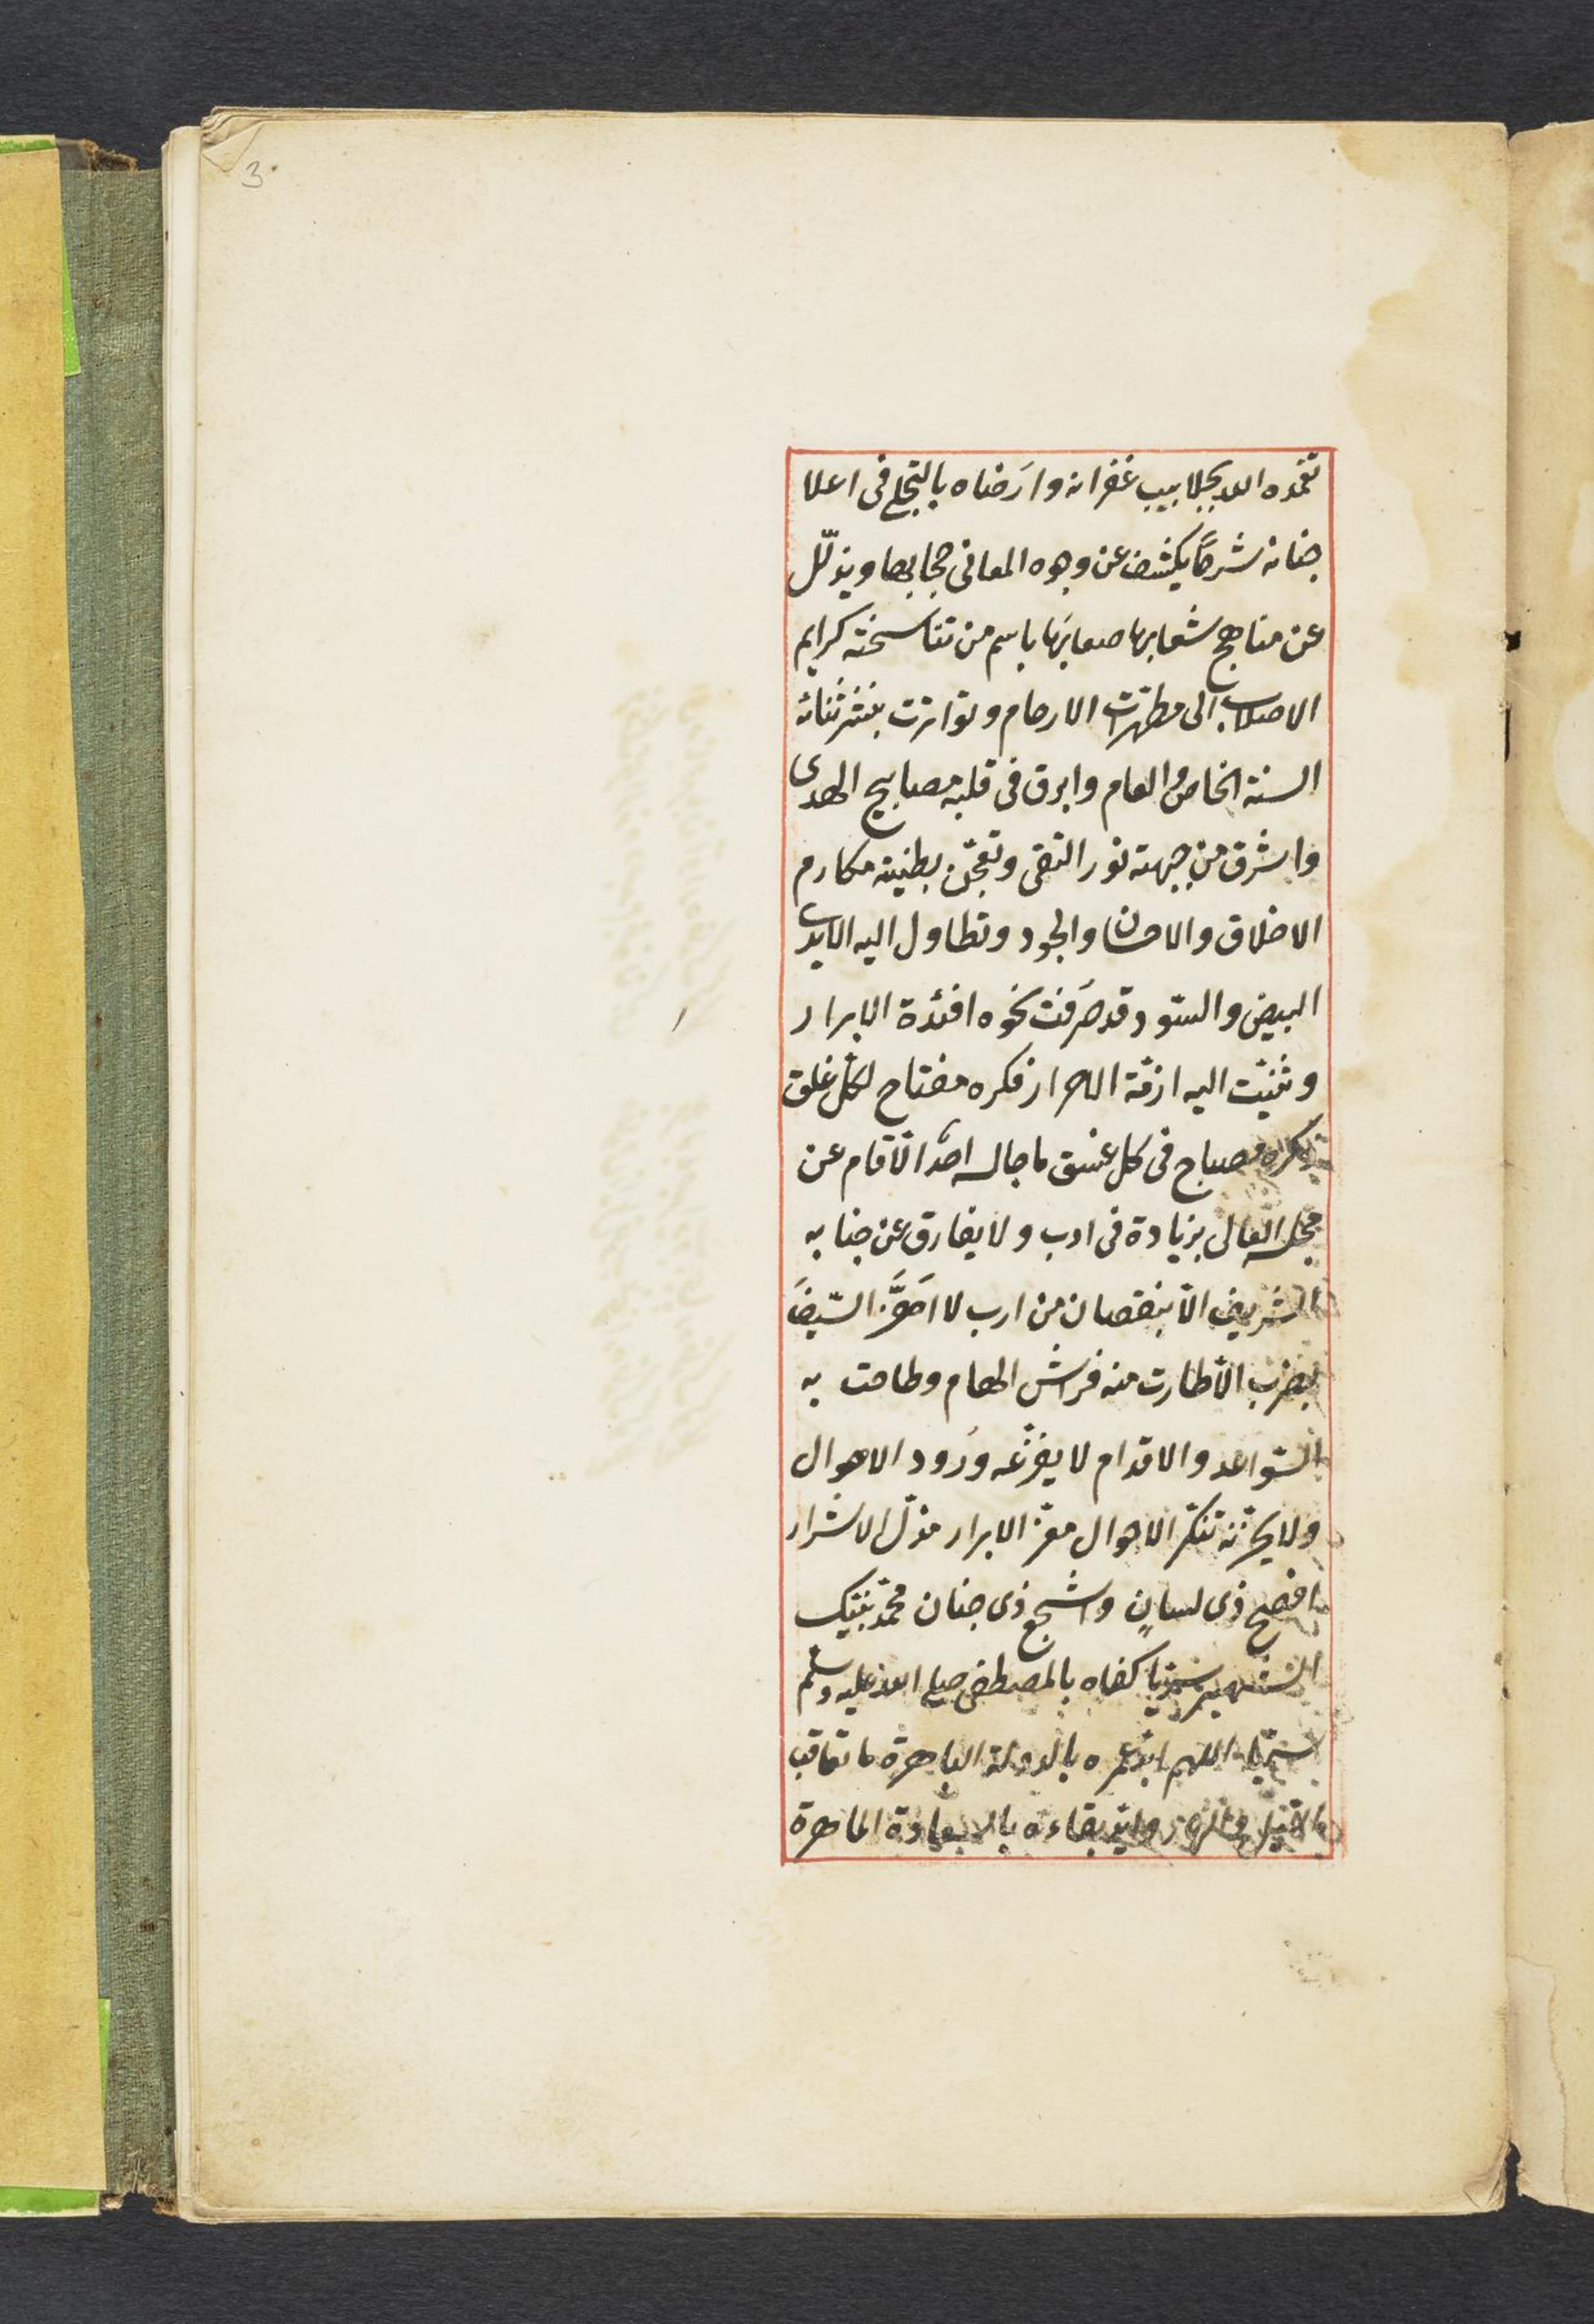 3
تغمده الله بجلابيب غفرانه وارَضاه بالتجلى فى اعلا
جنانه شرحًا يكشف عن وجوه المعانى حجابها ويذلّل
عن مناهج شعابها صعابَها باسم من تناسخته كرايم
الاصلاب الى مطهرات الارحام وتواترت بنشر ثنائه
السنة الخاص والعام وابرق فى قلبه مصابيح الهدى
واشرق من جبهته نور التقى وتعجّن بطينه مكارم
الاخلاق والاحسان والجود وتطاول اليه الايدى
البيض والسّود وقد صَرَفت نحوه افئدة الابرار
وثنيّت اليه ازمّة الاحرار فكره مفتاح لكلّ غلق
ذكره مصباح فى كل غسق ما جالسه احدٌ الّا قام عن
مجلسه العالى بزيادة فى ادب ولا يفارق عن جنابه
الشريف الّا بنقصان من ارب لا اَحَوَّ السّيفَ
بضرب الّا طارت منه فراش الهام وطاحت به
السّواعد والاقدام لا يفزّعه وَرُود الاهوال
ولا يحزنه تنكّر الاحوال معزّ الابرار مذلّ الاشرار
افصح ذى لسانٍ واشجع ذى جنان محمّد بيك
الشهير بميرزا كفاه بالمصطفى صلى الله عليه وسلم
سميّا اللهم ابّد عمره بالدولة الباهرة ما تعاقب
الليل والنهار وايّد بقاءه بالسعادة الماهرة